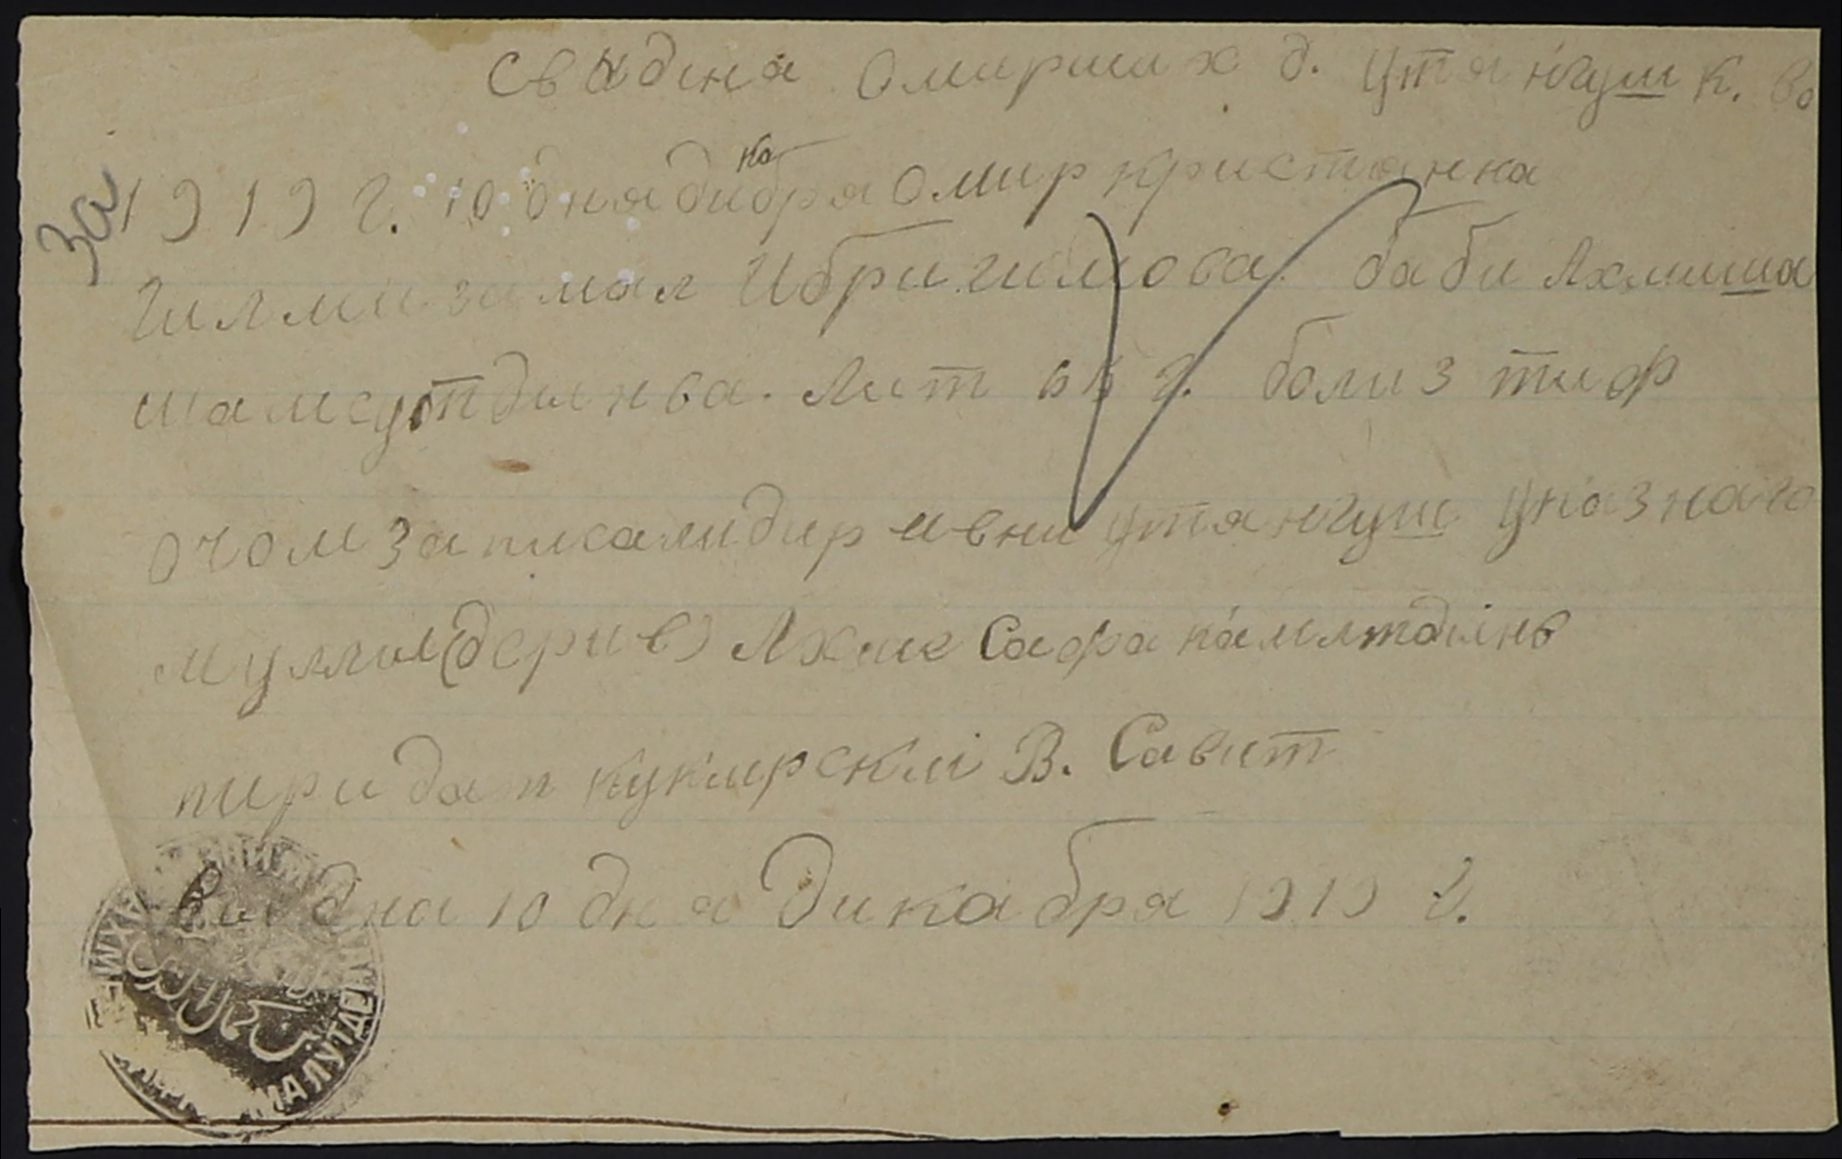 Свядена Омирших д. Утянгуш К. Во
За 1919 г. 10 дня дикабря Омир кристянка
Гилмизамал Ибригимова баби Ахмиша
шамсутдинва. Лит 65 г. болиз тиф
очом записали диривни Утянгуш Указнаго
муллы Ахме Сафа камалтдінв
пиридат Кукмрскі В. Савит
выдна 10 дня Дикабря 1919 г.
МАЛУТДЕ